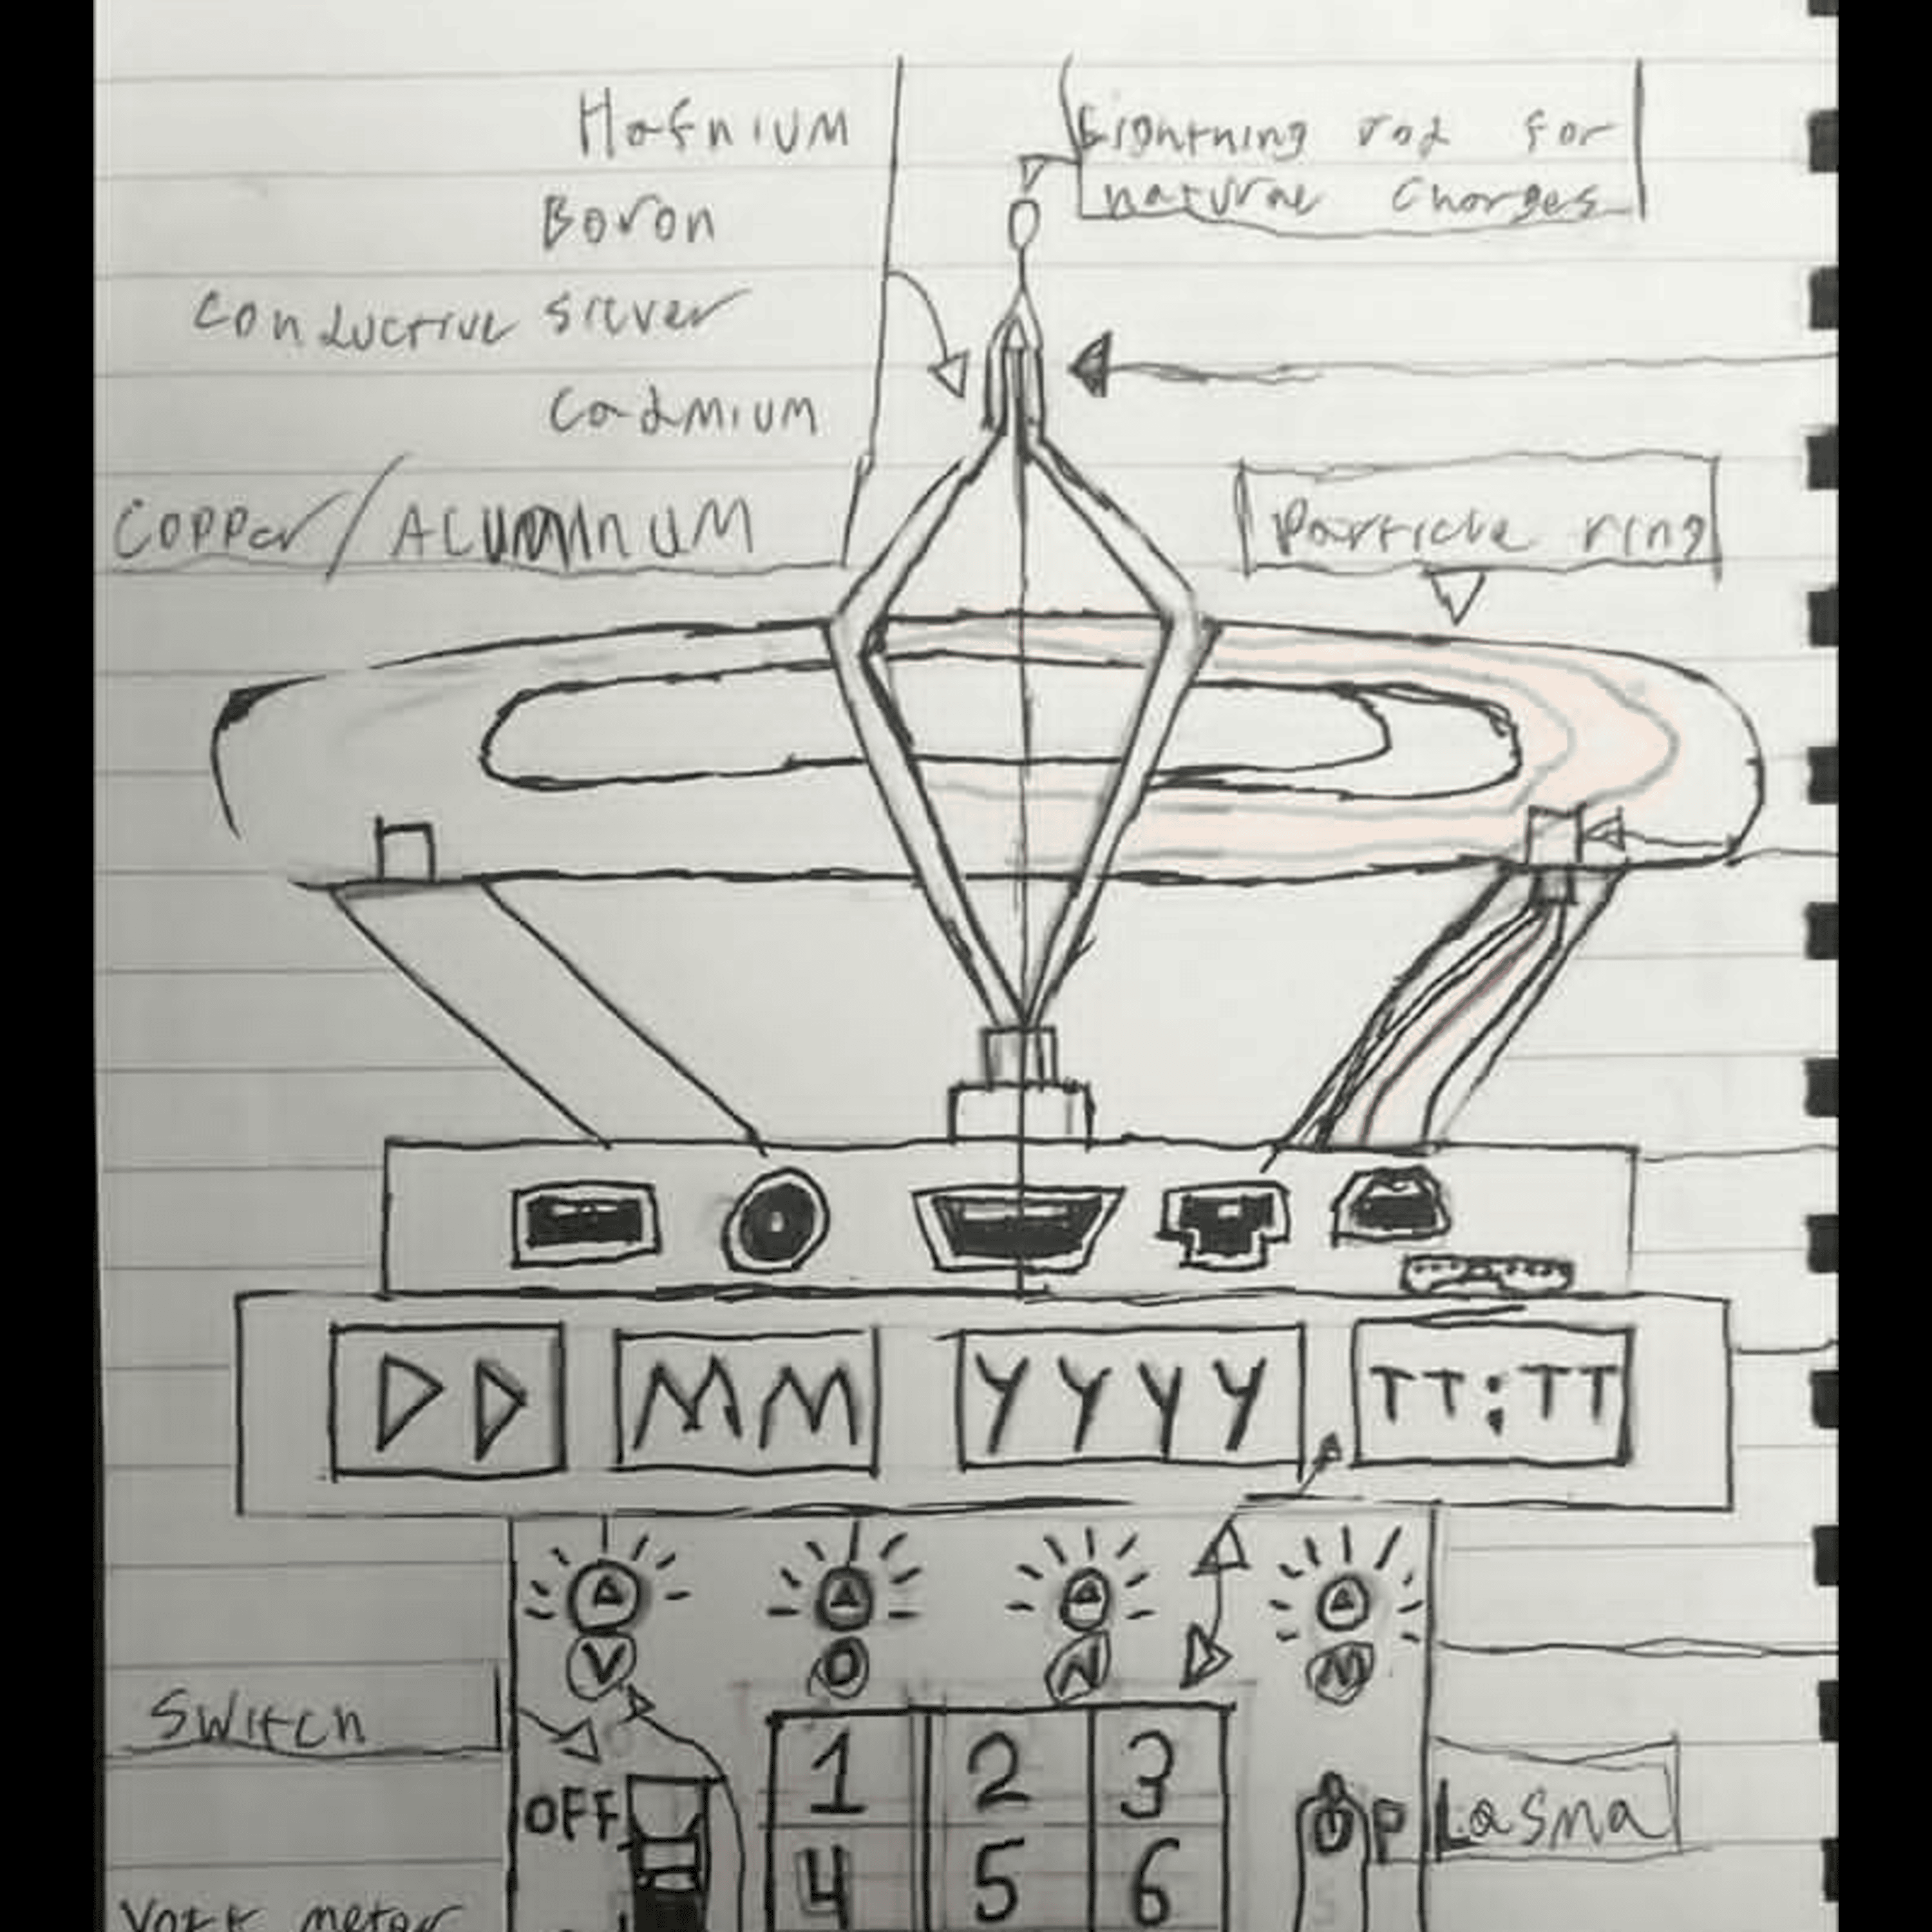 Hafnium
Lightning rod for
natural charges
Boron
Conductive silver
Cadmium
Copper/ALUMINUM
Particle ring
DD MM YYYY TT:TT
V O N M
Switch
1 2 3
OFF
PLasma
4 5 6
Volt meter